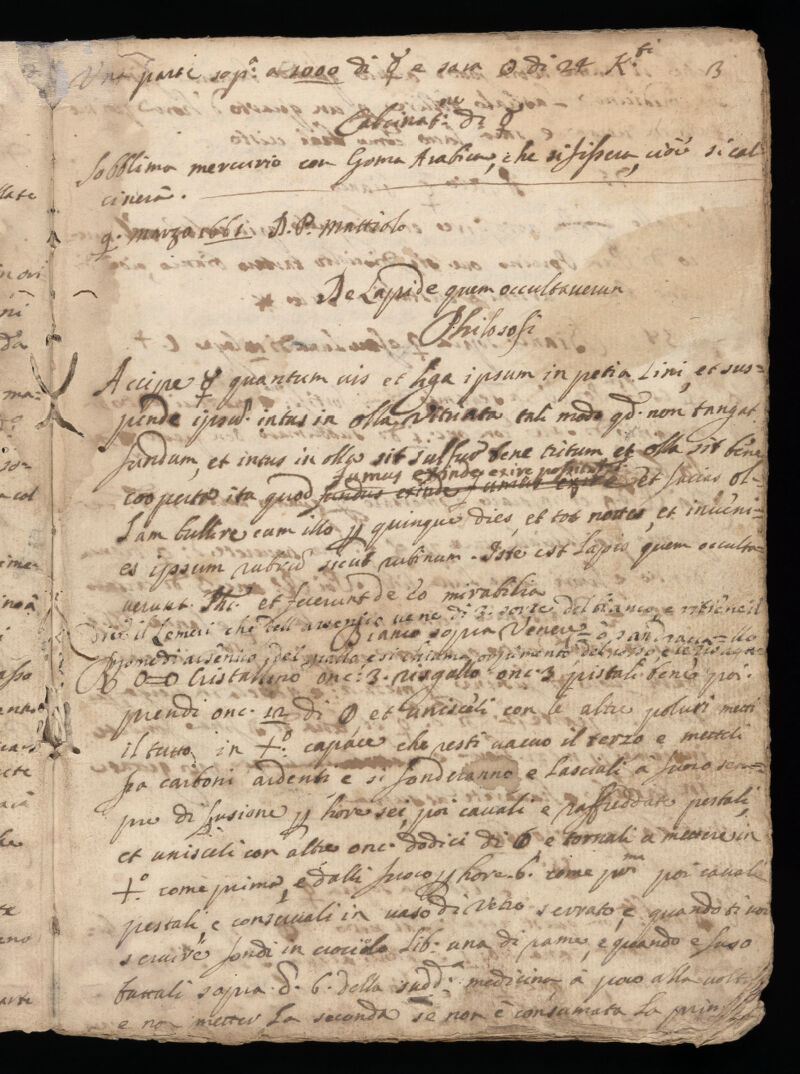 Una parte sop.ª a 1000 di ☿ e sara ☉ di 24 K.ti 3
Calcinat.ne di ☿
Sobblima mercurio con Goma Arabica, che si fissera, cioè si cal
cinerà.
q.º marzo 1661. D. P. Mattiolo
De Lapide quem occultaverun
Philosofi
Accipe ☿ quantum vis et liga ipsum in petia Lini, et sus=
pende ipsũ intus in olla vitriata tali modo qd. non tangat
fundum, et intus in olla sit sulfur bene tritum et olla sit bene
fumus exinde exire possit
cooperta ita quod fundus exinde fumus exire et facias ol-
lam bullire cum illo p quinque dies, et tot nottes, et inveni=
es ipsum rubicũ sicut rubinum. Iste est Lapis quem occulta=
verunt Phi. et fecerunt de eo mirabilia
dice il Lemeri che dell arsenico vene di 3. sorte del bianco, e ritiene il
Bianco sopra Venere
nome di arsenico, del giallo e si chiama orpimento del rosso, e
cristallino onc: 3. risgallo onc. 3 pistali bene poi
prendi onc. 12 di et unisceli con le altre polveri metti
il tutto in +.º capace che resti vacuo il terzo e metteli
fra carboni ardenti e si fonderanno e lasciali à fuoco sem=
pre di fusione p hore sei, poi cavali e raffreddati pestali,
et unisceli con altre onc. dodici di e tornali a mettere in
+.º come prima, e dalli fuoco p hore 6. come pr.ma poi cavali
pestali, e conservali in vaso di vetro serrato, e quando ti vor
servire fondi in crociolo lib. una di rame, e quando e fuso
buttali sopra 6. della sudd.ª medicina, à poco alla volta
e non metter la seconda se non è consumata la prim